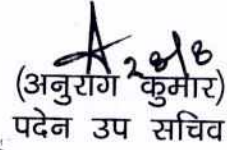 28/8
(अनुराग कुमार)
पदेन उप सचिव